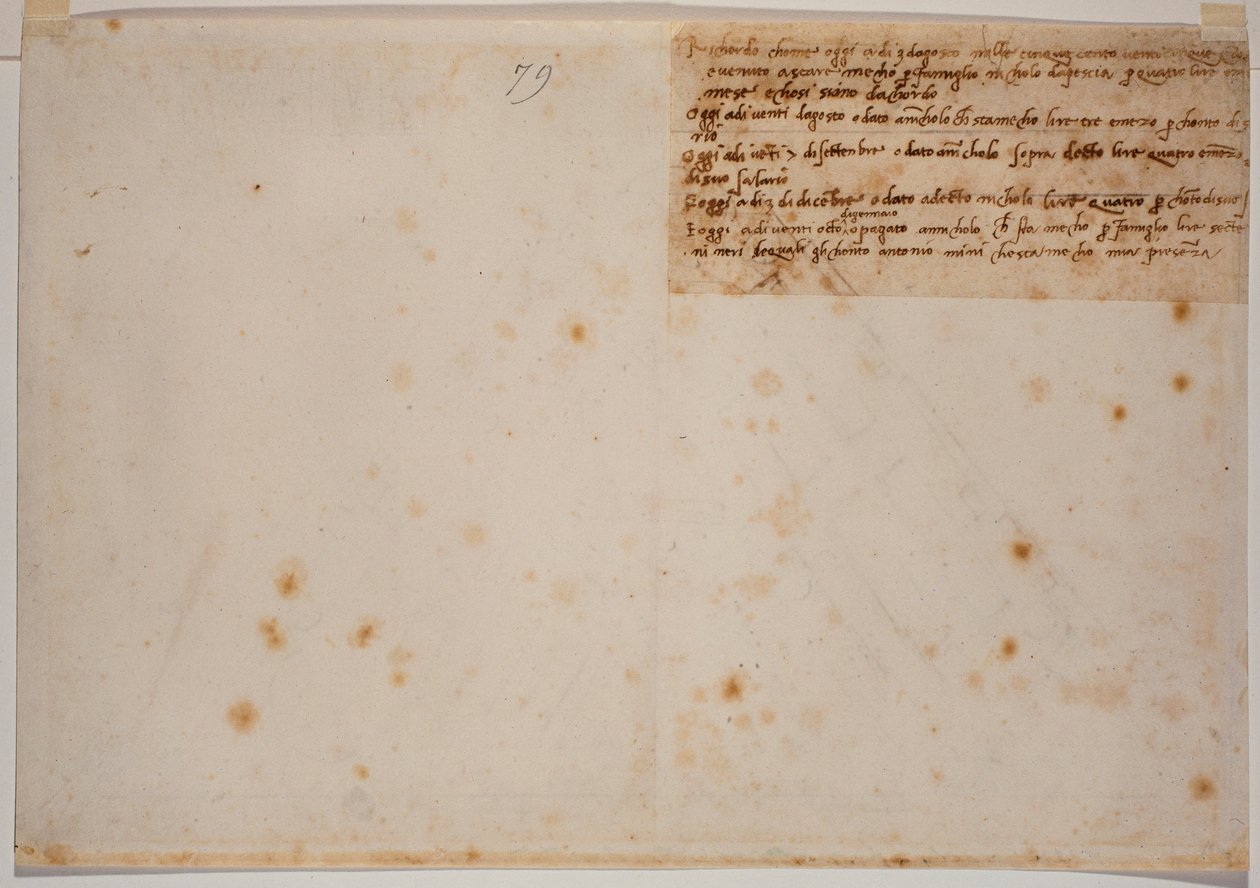 79
Richordo chome oggi adi 3 dagosto mille cinque cento venti
evenuto astare mecho p famiglio nicholo dapescia p quatro lire el
mese echosi siano dachordo
Oggi adi venti dagosto o dato a nicholo ch sta mecho lire tre emezo p chonto di s
rio
Oggi adi veti 7 di settenbre o dato a nicholo sopra decto lire quatro emezo
di suo salario
E oggi adi 3 di dicebre o dato adecto nichola lire quatro p choto di suo
di gennaio
E oggi adi venti octo o pagato a nicholo ch sta mecho p famiglio lire secte
ni neri de quali gli chonto antonio mini che sta mecho mia preseza